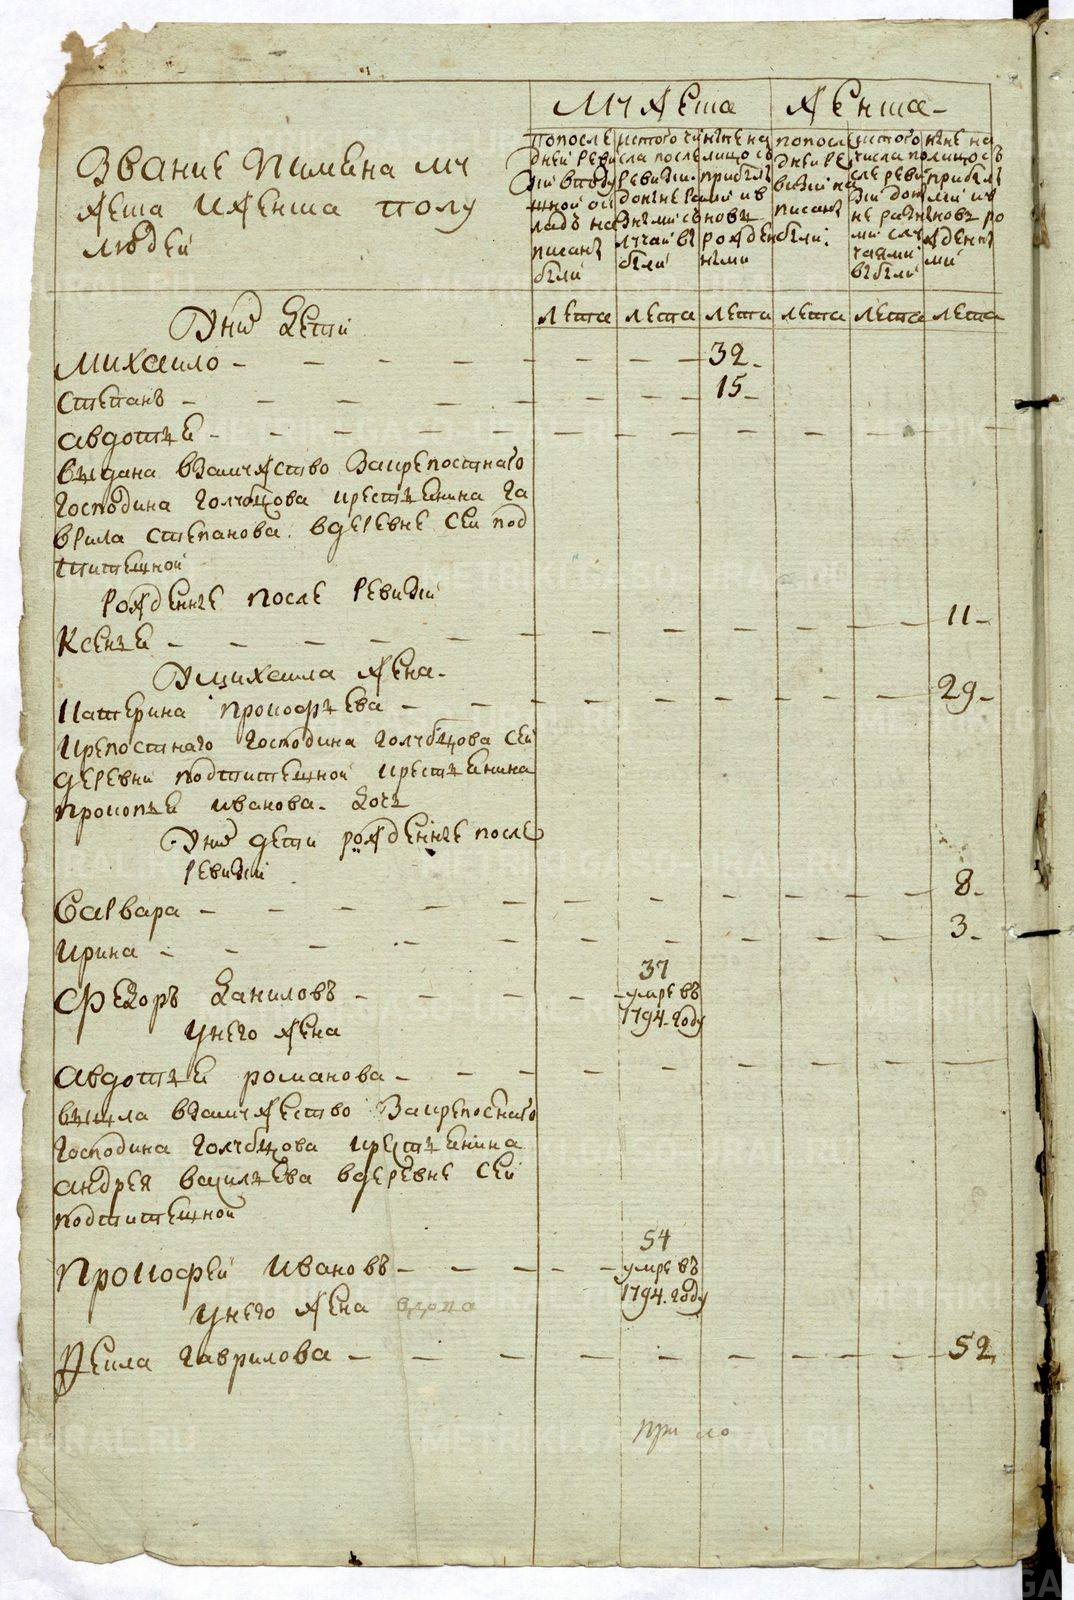 Мужеска
Женска
Звание имена му
жеска и женска полу
людей
попосле
дней реви
зии вподу
шной ок
ладъ на
писанъ
были
истого чи
сла после
ревизии
случаи вы
были
ныне на
лицо со
прибы
лыми и в
новъ
рожден
ными
попосл
дней ре
визии на
писанъ
были
истого
числа по
сле реви
зии
разны
ми слу
чаями
выбыли
ныне на
лицо съ
прибы
лыми и в
новъ ро
жденны
ми
лета лета лета лета лета лета
У них дети
Михаило 32
Степанъ 15
Авдотья
выдана взамужство за крепостнаго
господина Голубцова крестьянина Га
врила Степанова в деревне сей Под
тишешной
рожденные после ревизии
Ксенья 11
У Михаила жена
Катерина Прокофьева 29
крепостнаго господина Голубцова сей
деревни Подтишешной крестьянина
Прокопья Иванова дочь
У них дети рожденные после
ревизии
Варвара 8
Ирина 3
Федоръ Даниловъ 37
умре въ
1794 году
у него жена
Авдотья Романова
вышла взамужество за крепостнаго
господина Голубцова крестьянина
Андрея Васильева в деревне сей
Подтишешной
Прокофей Ивановъ 54
умре въ
1794 году
у него жена
Фекла Гаврилова 52